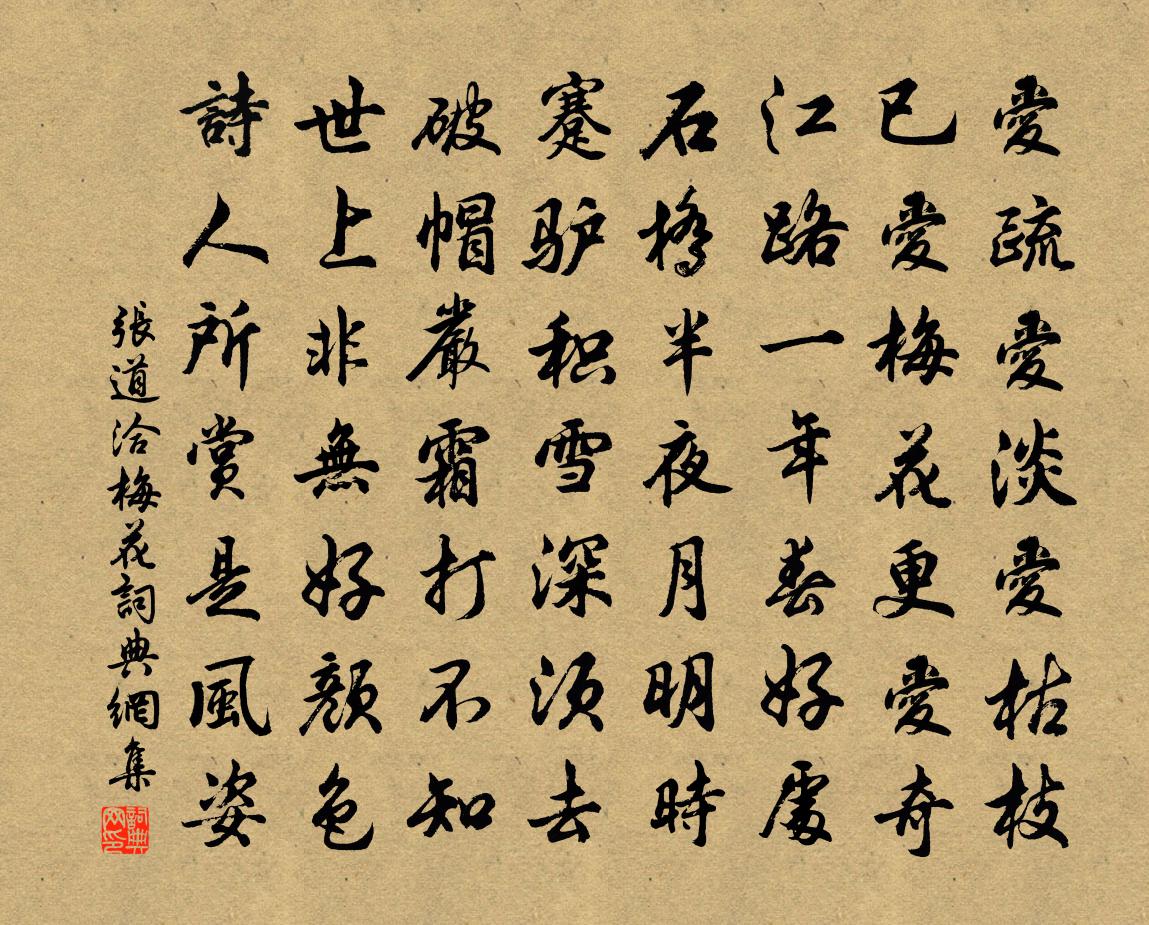 愛疏愛淡愛枯枝
已愛梅花更愛奇
江路一年春好處
石橋半夜月明時
蹇驴积雪深须去
破帽嚴霜打不知
世上非無好顔色
詩人所赏是風姿
張道洽梅花詞典網集
詞典网印